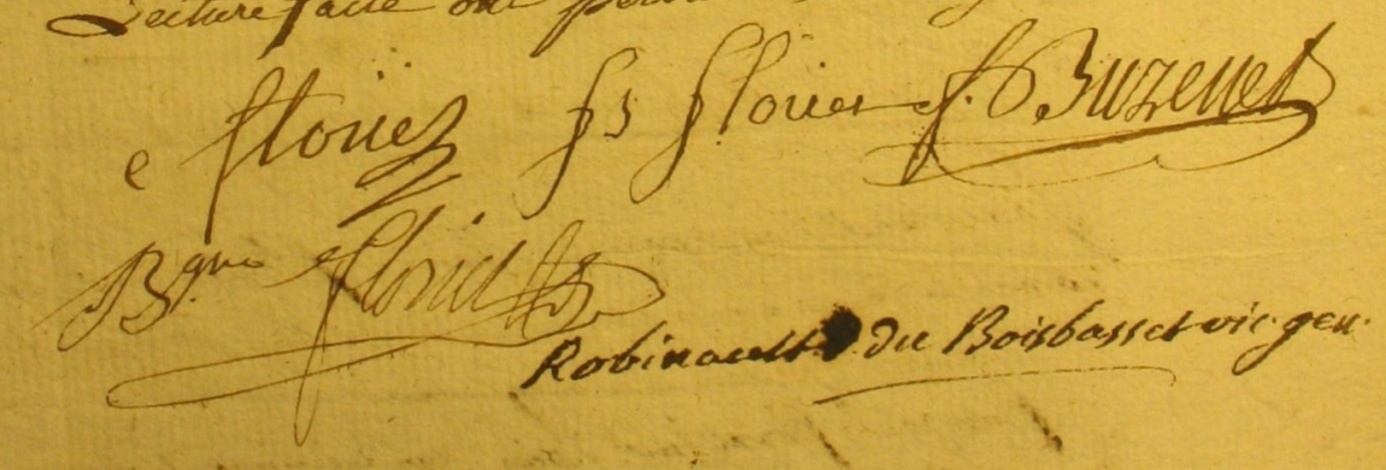 Lecture faite ont
e floüez fs flouer f. Buzenet
B.gne flouet
Robinault du Boisbasset vic. gen.